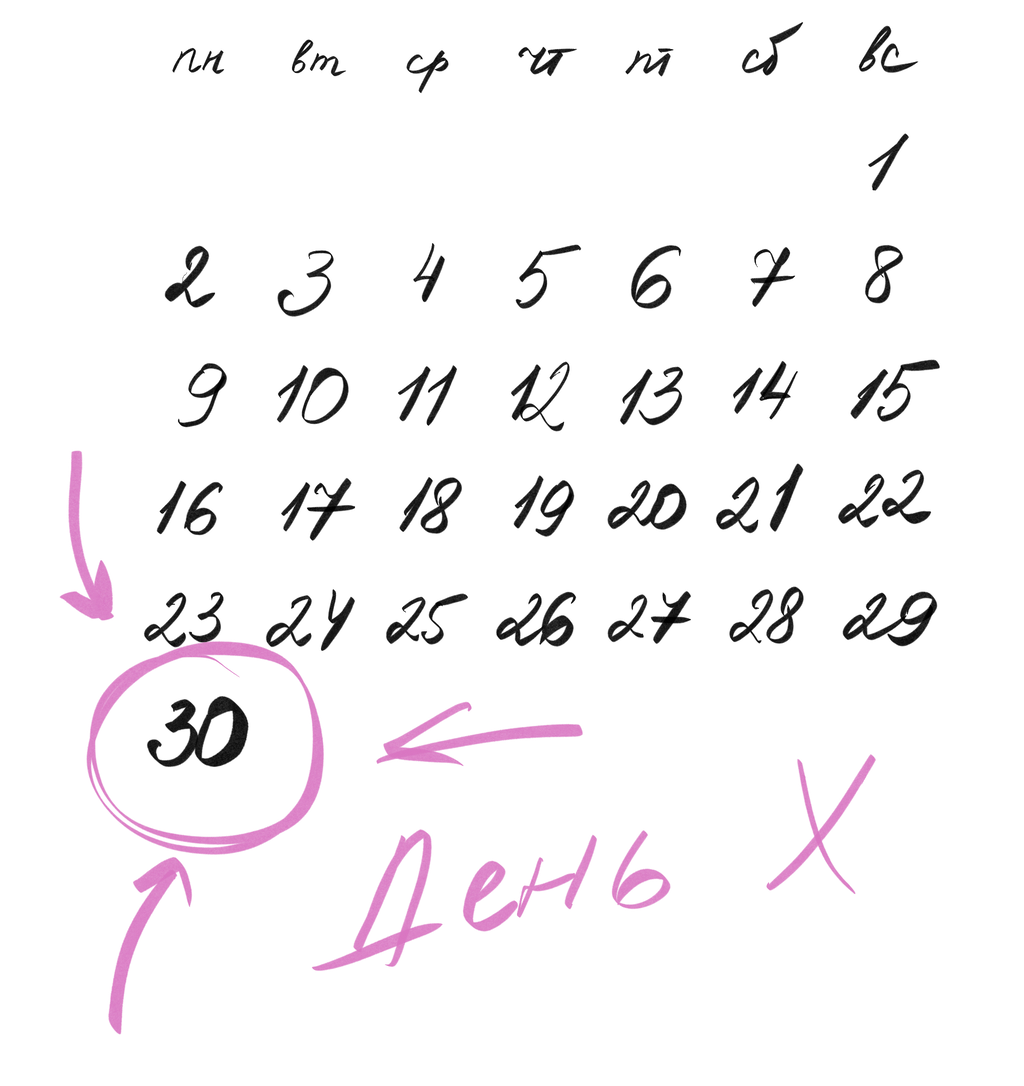 пн вт ср чт пт сб вс
1
2 3 4 5 6 7 8
9 10 11 12 13 14 15
16 17 18 19 20 21 22
23 24 25 26 27 28 29
30
День X